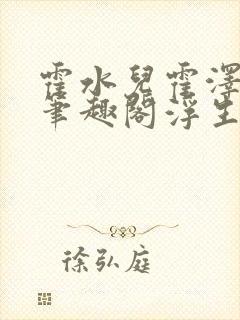 霍水兒霍澤
筆趣閣浮生
徐弘庭